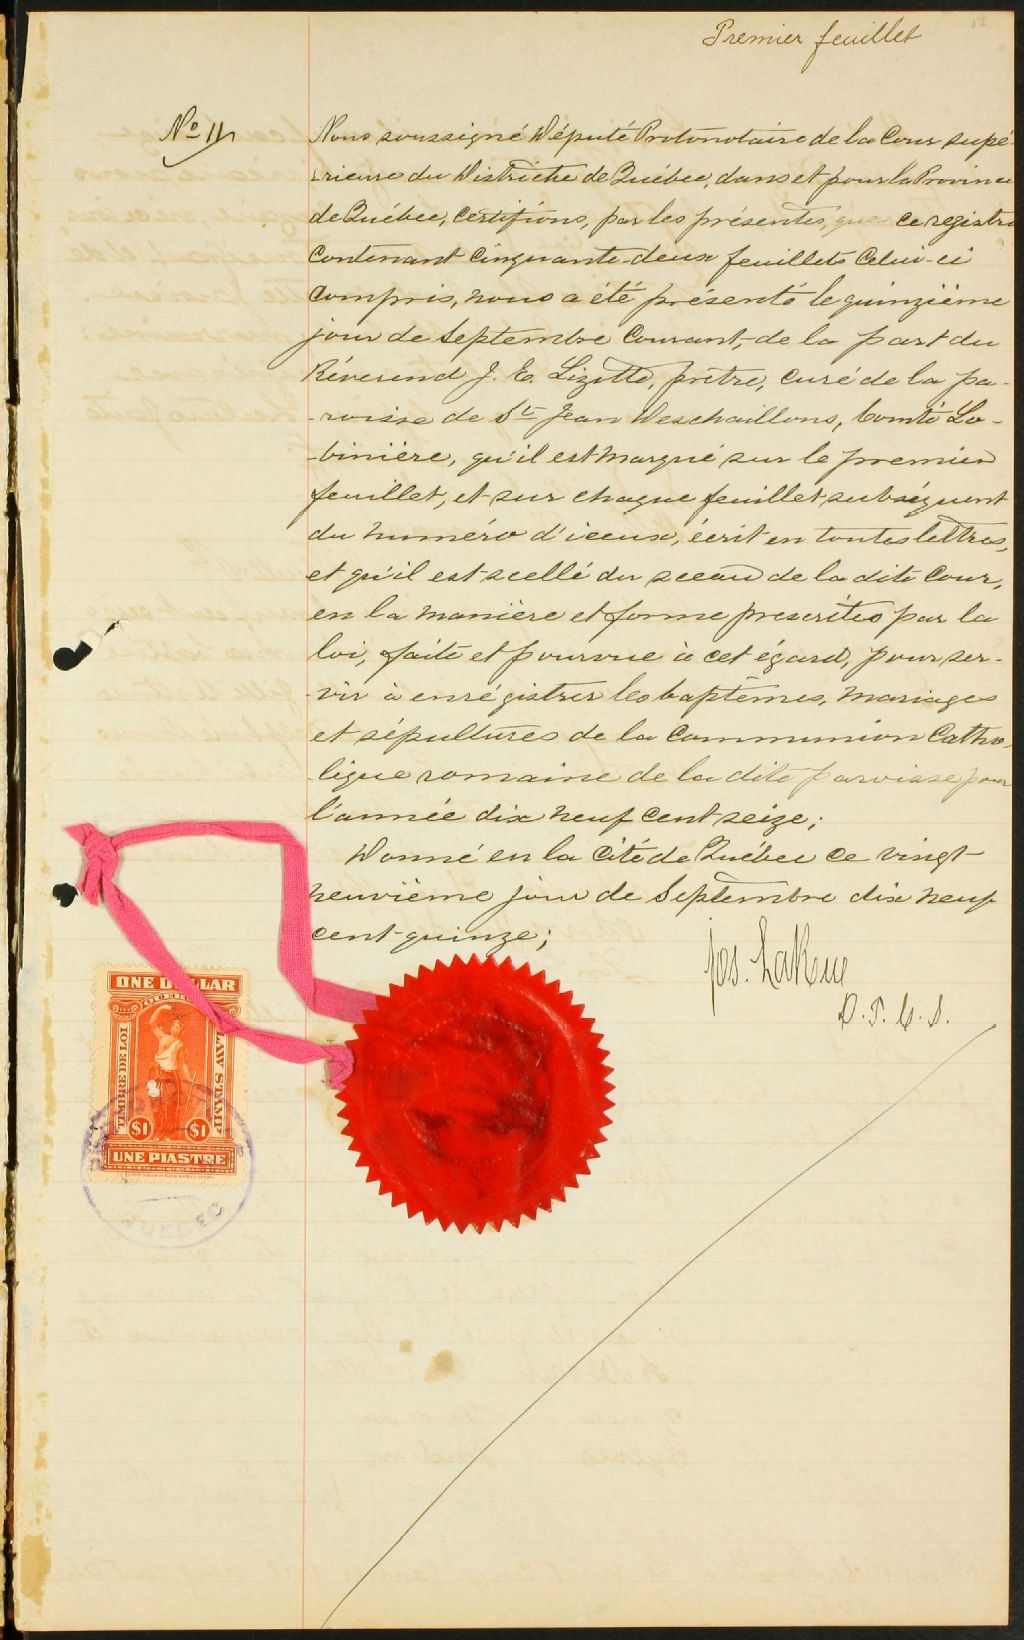 Premier feuillet
No 11
Nous soussigné Député Protonotaire de la Cour supé-
-rieure du Districte de Québec, dans et pour la Province
de Québec, certifions, par les présentes, que ce registre
contenant cinquante-deux feuillets celui-ci
compris, nous a été présenté le quinzième
jour de Septembre courant, de la part du
Révérend J. E. Lizotte, prêtre, curé de la pa-
-roisse de St Jean Deschaillons, Comté Lo-
-binière, qu'il est marqué sur le premier
feuillet, et sur chaque feuillet subséquent
du numéro d'iceux, écrit en toutes lettres,
et qu'il est scellé du sceau de la dite Cour,
en la manière et forme prescrites par la
loi, faite et pourvue à cet égard, pour ser-
-vir à enrégistrer les baptêmes, mariages
et sépultures de la Communion Catho-
-lique romaine de la dite paroisse pour
l'année dix neuf cent seize;
Donné en la Cité de Québec ce vingt-
neuvième jour de Septembre dix neuf
cent-quinze;
Jos. LaRue
D. P. C. S.
ONE DOLLAR
QUEBEC
TIMBRE DE LOI
LAW STAMP
$1 $1
UNE PIASTRE
QUEBEC